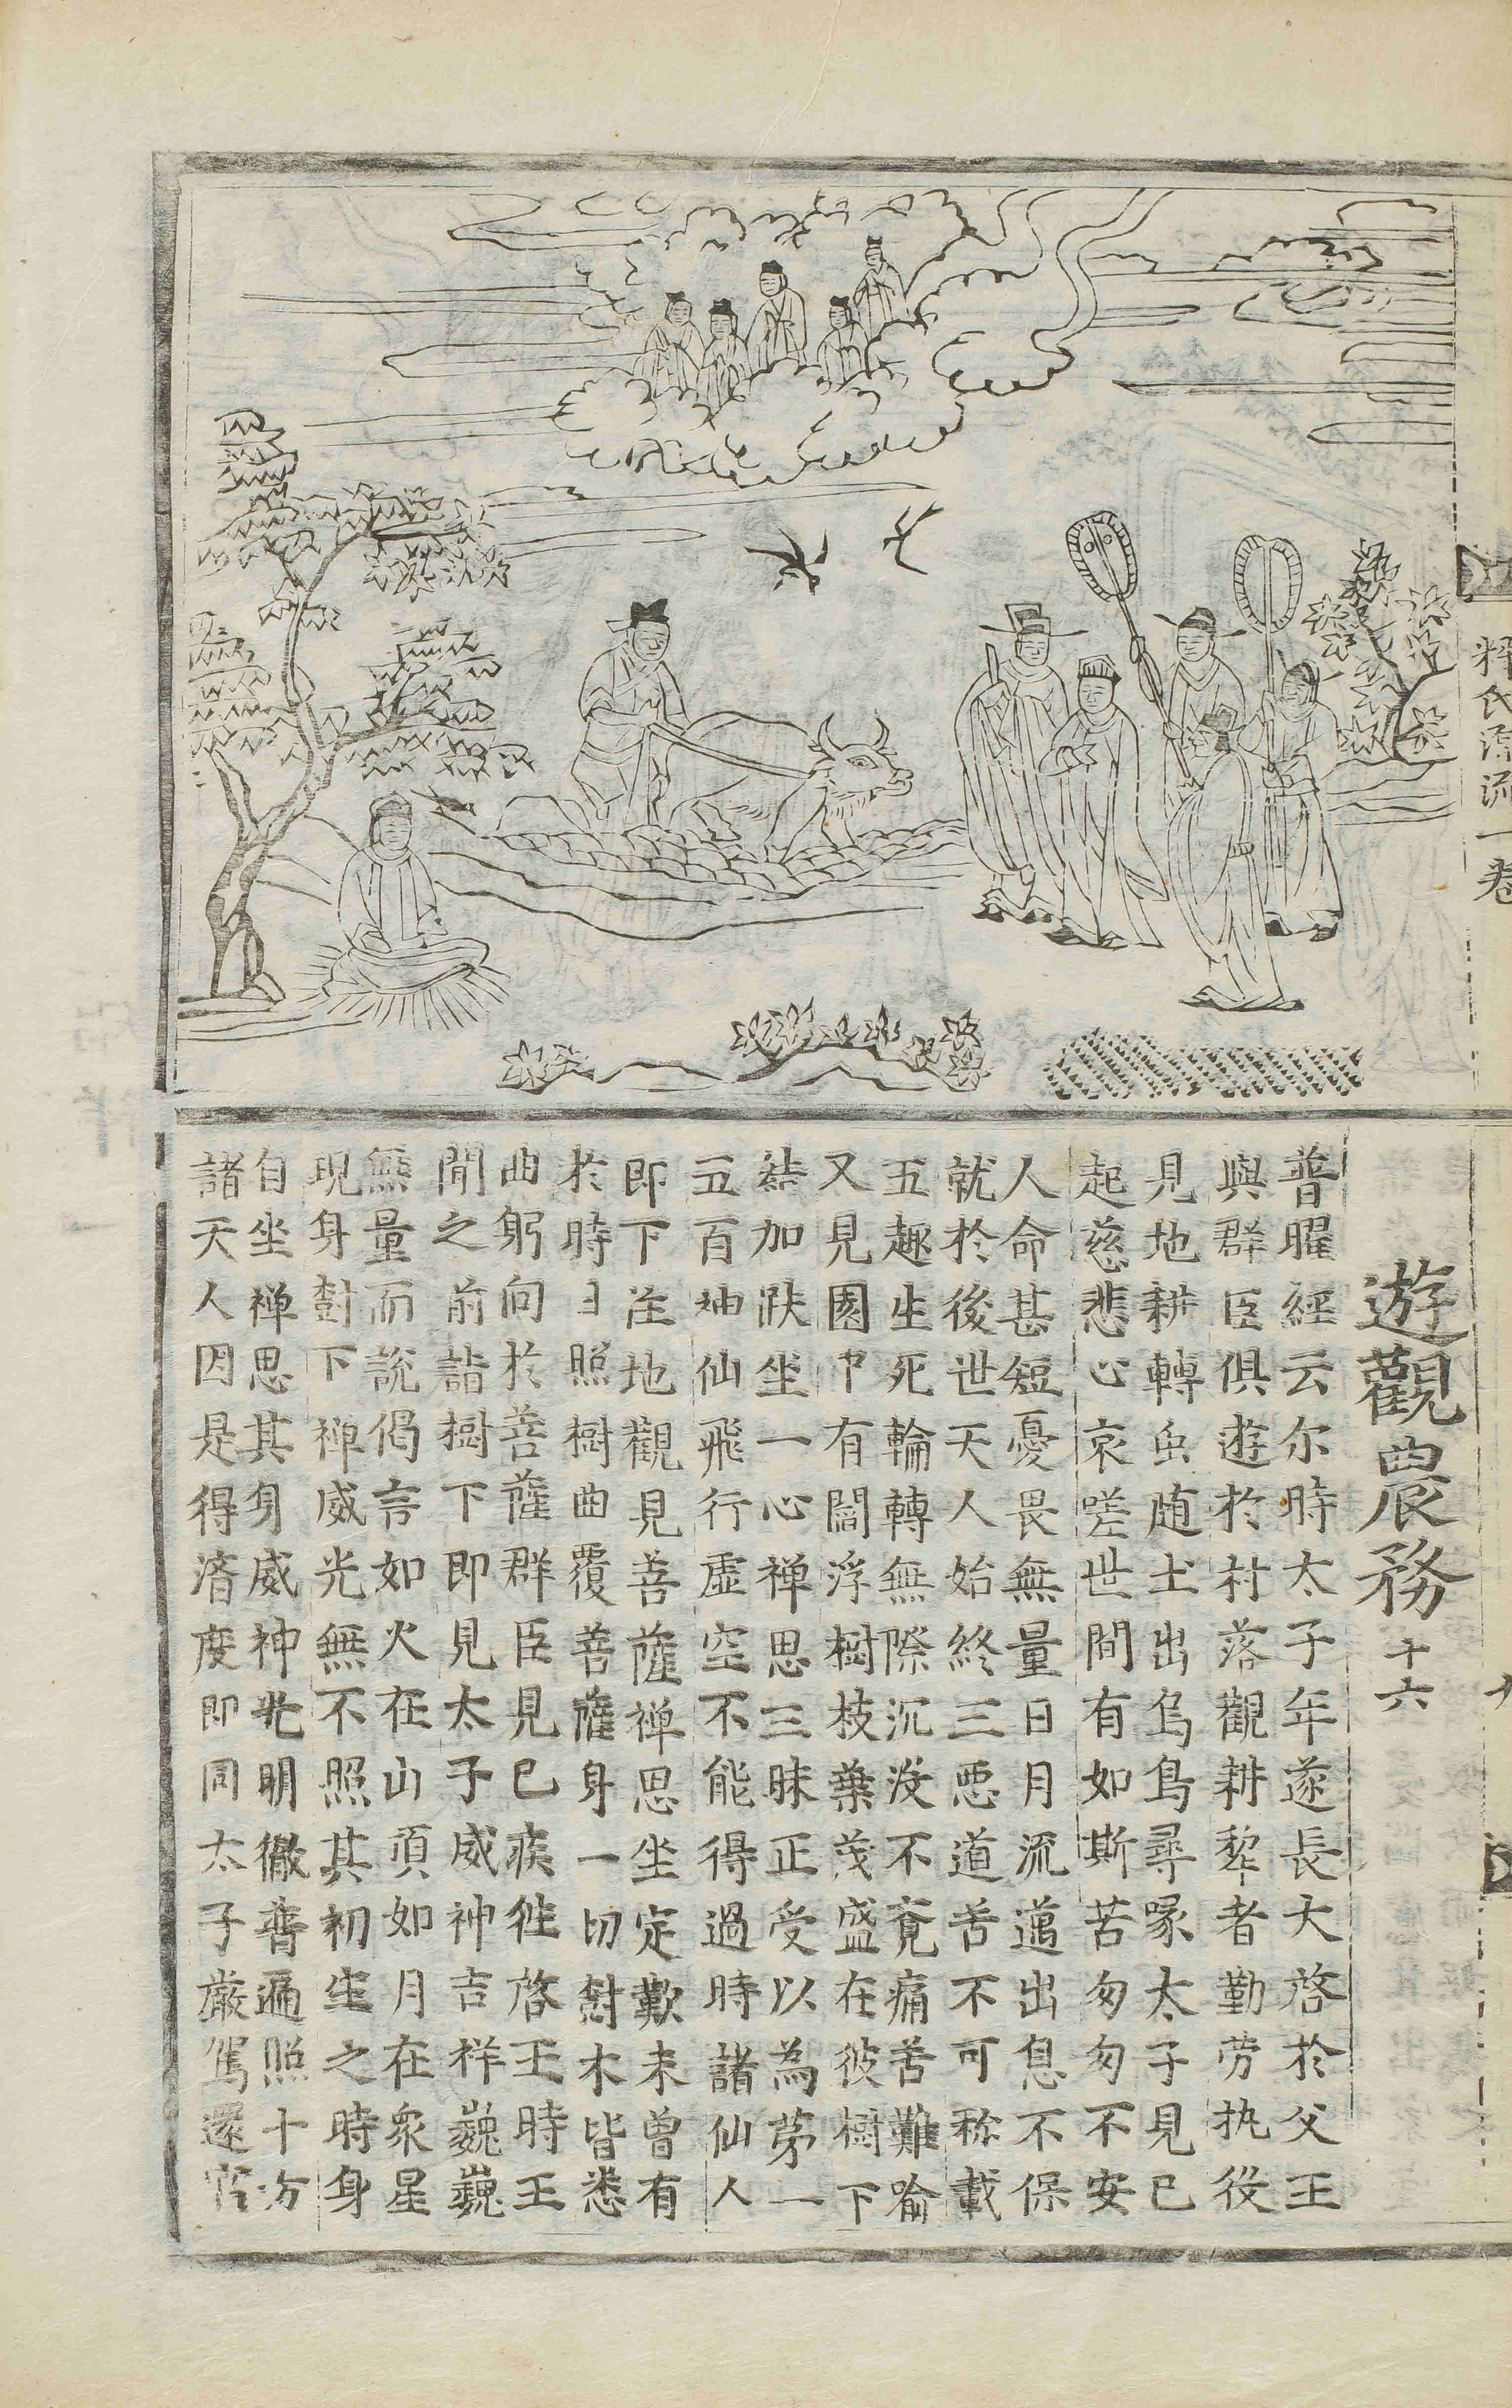 釋氏源流一卷
遊觀農務 十六
普曜經云尔時太子年遂長大啓於父王
與群臣俱遊於村落觀耕犂者勤劳执役
見地耕轉虫随土出烏鳥尋啄太子見已
起慈悲心哀嗟世間有如斯苦匆匆不安
人命甚短憂畏無量日月流邁出息不保
就於後世天人始終三惡道苦不可称載
五趣生死輪轉無際沉没不覔痛苦難喻
又見園中有閻浮樹枝葉茂盛在彼樹下
結加趺坐一心禅思三昧正受以為苐一
五百神仙飛行虛空不能得過時諸仙人
即下徃地觀見菩薩禅思坐定歎未曾有
於時日照樹曲覆菩薩身一切樹木皆悉
曲躬向於菩薩群臣見已疾徃啓王時王
聞之前詣樹下即見太子威神吉祥巍巍
無量而說偈言如火在山頂如月在衆星
現身樹下禅威光無不照其初生之時身
自坐禅思其身威神光明徹普遍照十方
諸天人因是得濟度即同太子嚴駕還宮